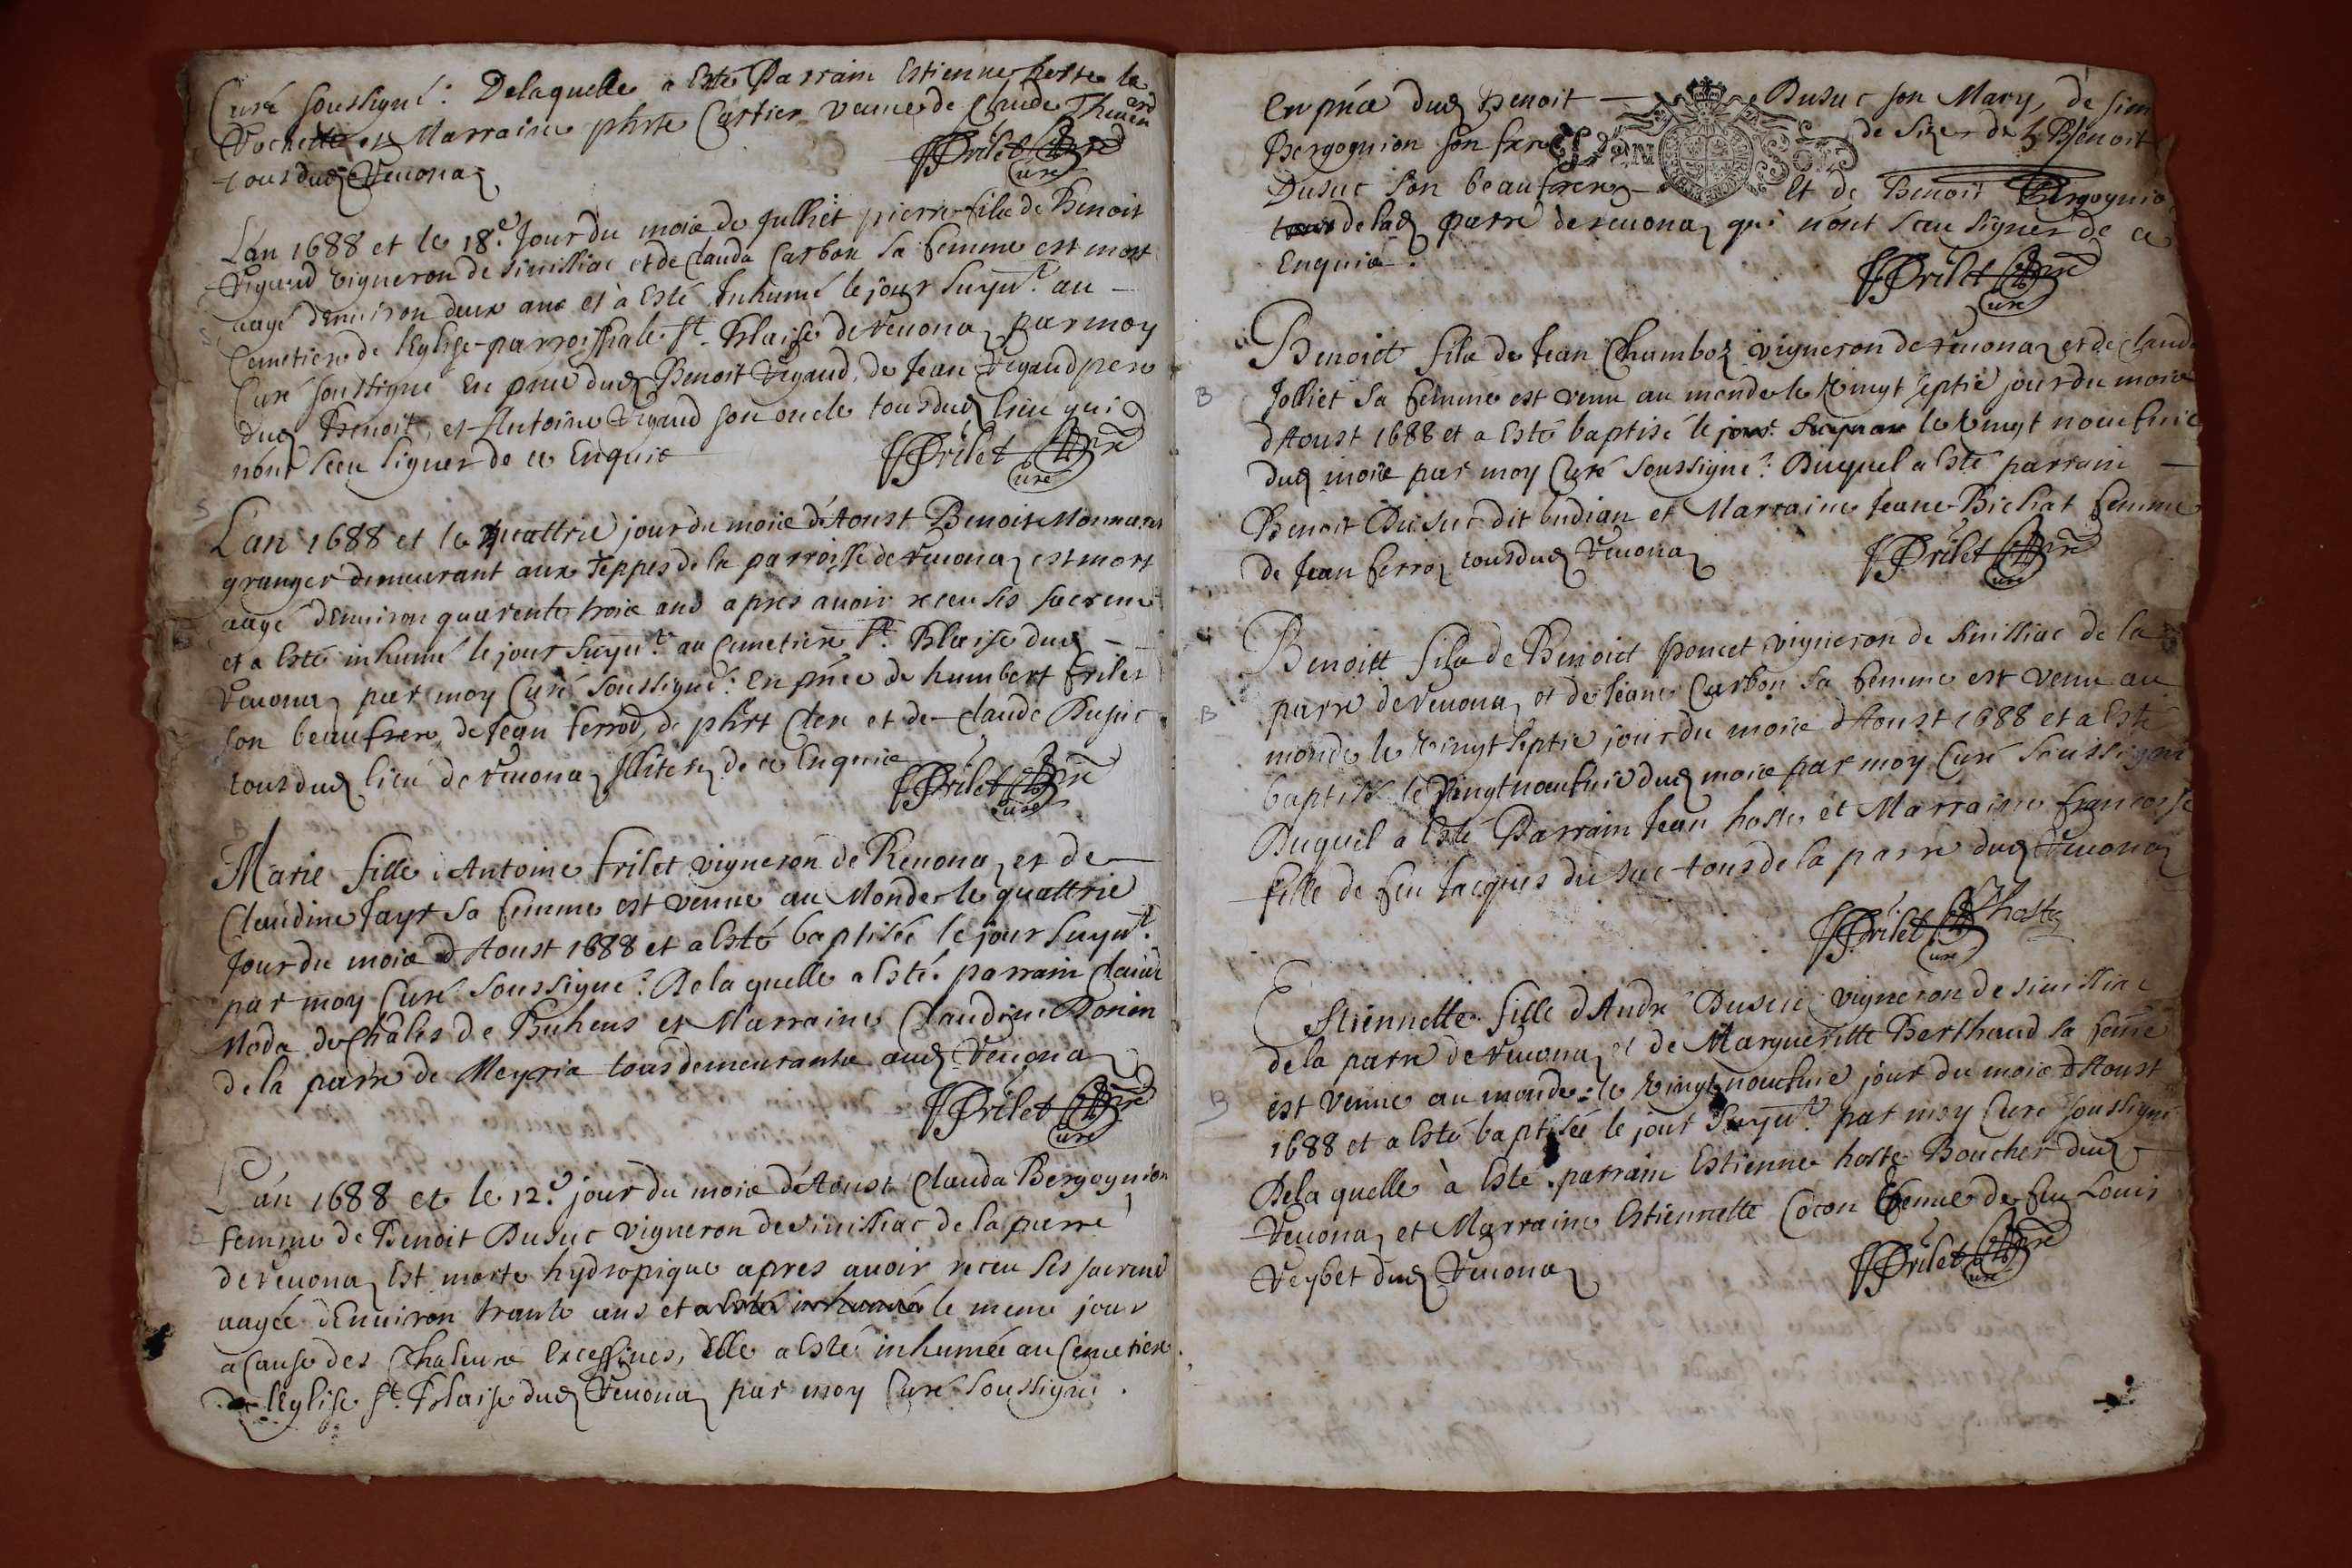 Curé soussigné. Delaquelle a Esté Parrain Estienne hoste la
Vochette et Marraine phrte Cartier veuue de Claude Theuen
tous dud Veuona
FFrilet pbre
Curé
L'an 1688 et le 18.e Jour du moie de Julliet pierre file de Benoit
Vigaud vigneron de sinissiac et de Clauda Carbon sa femme est mort
aagé denuiron deux ans et à Esté Inhumé le jour suyut. au
Cemetiere de lEglise parroissiale St. Blaise de Veuona par moy
Curé soussigné En pnce dud Benoit Vigaud, de Jean Vigaud pere
dud Benoit, et Antoine Vigaud son oncle tous dud lieu qui
nont sceu signer de ce Enquis
FFrilet pbre
Curé
S
L'an 1688 et le quattrie jour du moie d'Aoust Benoit Monnaret
granger demeurant aux Teppes de la parroisse de Veuona est mort
aagé dEnuiron quarente troie ans apres auoir receu ses sacrem
et a Esté inhumé le jour suyut. au Cemetiere St. Blaise dud
Veuona par moy Curé soussigné: En pnce de humbert frilet
son beaufrere, de Jean ferrod, de phrt Clere et de Claude Dusuc
tous dud lieu de Veuona Illiterez de ce Enquis
FFrilet pbre
Curé
Marie fille Antoine frilet vigneron de Veuona et de
Claudine Jayr sa femme est venue au Monde le quattrie
Jour du moie dAoust 1688 et a Esté baptisée le jour suyut.
par moy Curé soussigné: Delaquelle a Esté parrain Claude
Moda de Chales de Buhens et Marraine Claudine Bonin
de la parre de Meyria tous demeurants aud Veuona
FFrilet pbre
Curé
L'an 1688 et le 12.e jour du moie d'Aoust Clauda Bergognion
femme de Benoit Dusuc vigneron de sinissiac de la parre
de Veuona Est morte hydropique apres auoir receu ses sacremt
aagée dEnuiron trante ans et a Esté inhumée le meme jour
a Cause des Chaleure Excessiues, Elle a Esté inhumée au Cemetiere
de lEglise St. Blaise dud Veuona par moy Curé soussigné.
En pnce dud Benoit Dusuc son Mary, de
Bergognion son frere de Benoit
Dusuc son beaufrere Et de Benoit Bergognio
tous de lad parre de veuona qui nont sceu signer de ce
Enquis.
GEN SOL
FFrilet pbre
Curé
Benoict file de Jean Chamboz vigneron de Veuona et de Claude
B
Jolliet sa femme est venu au monde le Vingt septie jour du moie
dAoust 1688 et a Esté baptisé le jour suyuan le Vingt noeufuie
dud moie par moy Curé soussigné: Duquel a Esté parrain
Benoit Dusuc dit budian et Marraine Jeane Bichat femme
de Jean ferroz tous dud Veuona
FFrilet pbre
Curé
Benoitt file de Benoict poncet vigneron de sinissiac de la
B
parre de Veuona et de Jeane Carbon sa femme est venu au
monde le Vingt septie jour du moie dAoust 1688 et a Esté
baptisé le Vingt noeufuie dud moie par moy Curé soussigné
Duquel a Esté Parrain Jean hoste et Marraine francoise
fille de feu Jacques du suc tous de la parre dud Veuona
JHhoste
FFrilet pbre
Curé
Estiennette fille dAndre Dusuc vigneron de sinissiac
de la parre de Veuona et de Margueritte Berthaud sa feme
B
est venue au monde le Vingt noeufuie jour du moie dAoust
1688 et a Esté baptisée le jour suyut. par moy Curé soussigné
Delaquelle à Esté parrain Estienne hoste Boucher dud
Veuona et Marraine Estiennette Cocon veuue de feu Louis
Veybet dud Veuona
FFrilet pbre
Curé